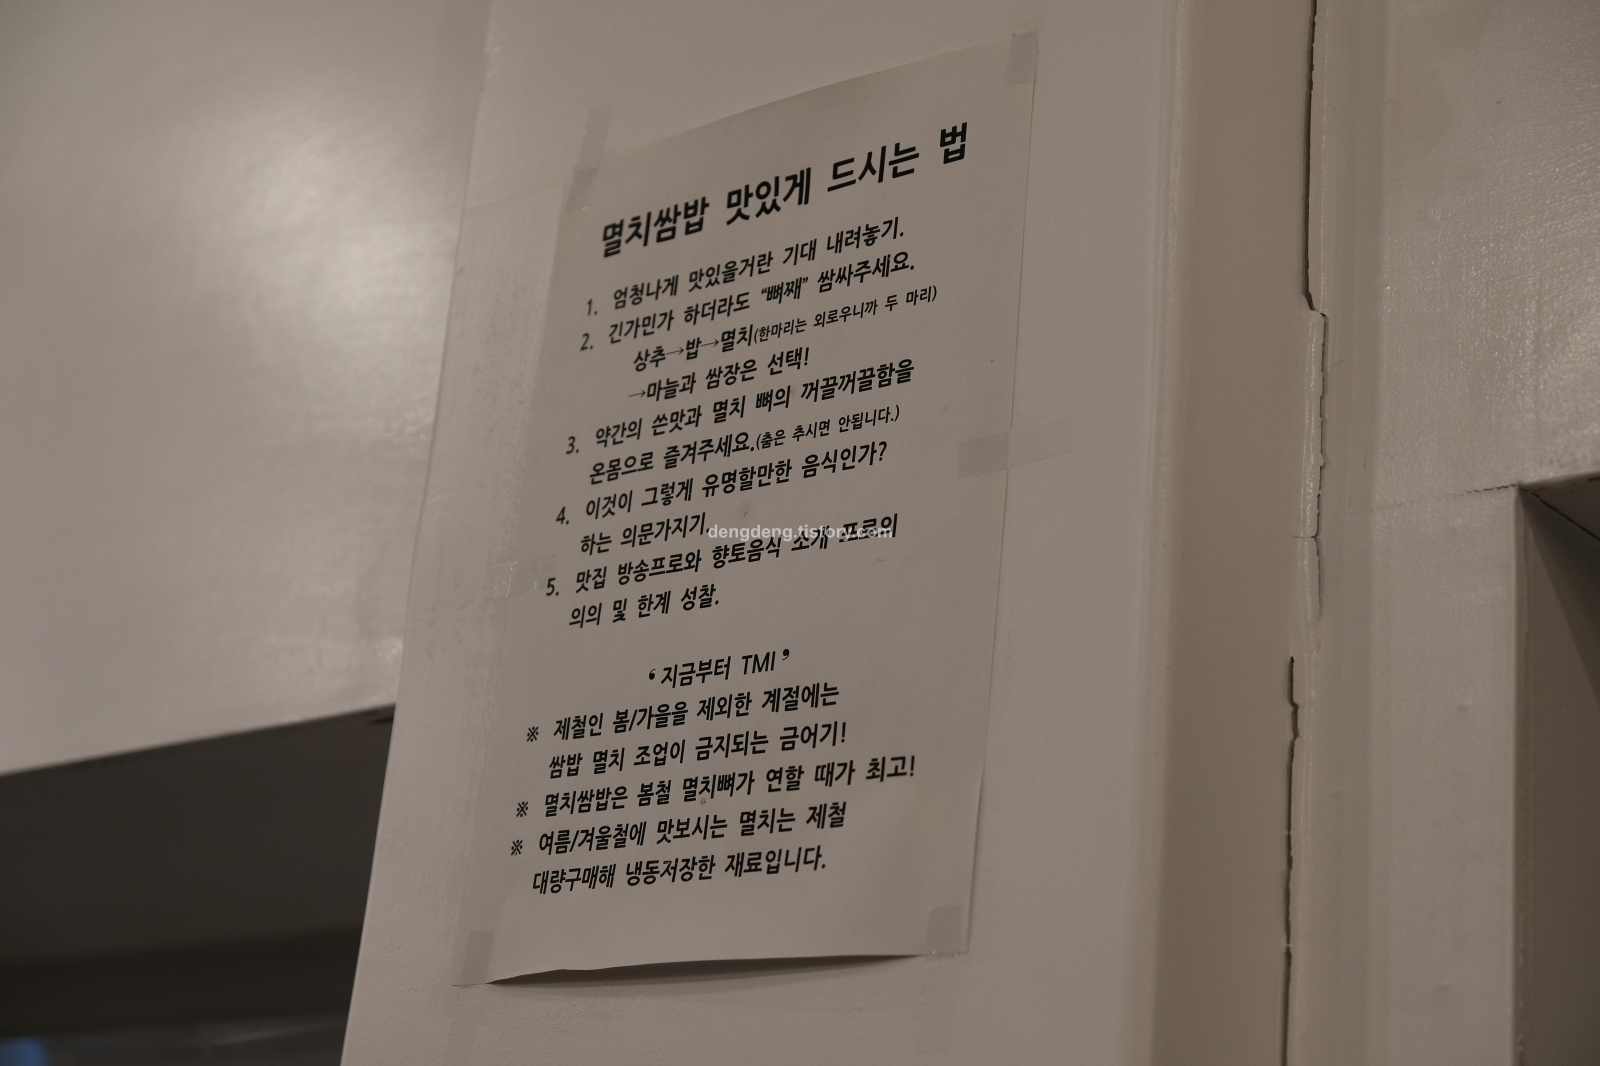 멸치쌈밥 맛있게 드시는 법
1. 엄청나게 맛있을거란 기대 내려놓기.
2. 긴가민가 하더라도 “뼈째” 쌈싸주세요.
상추→밥→멸치(한마리는 외로우니까 두 마리)
→마늘과 쌈장은 선택!
3. 약간의 쓴맛과 멸치 뼈의 꺼끌꺼끌함을
온몸으로 즐겨주세요.(춤은 추시면 안됩니다.)
4. 이것이 그렇게 유명할만한 음식인가?
하는 의문가지기.
dengdeng.tistory.com
5. 맛집 방송프로와 향토음식 소개 프로의
의의 및 한계 성찰.
‘지금부터 TMI’
※ 제철인 봄/가을을 제외한 계절에는
쌈밥 멸치 조업이 금지되는 금어기!
※ 멸치쌈밥은 봄철 멸치뼈가 연할 때가 최고!
※ 여름/겨울철에 맛보시는 멸치는 제철
대량구매해 냉동저장한 재료입니다.